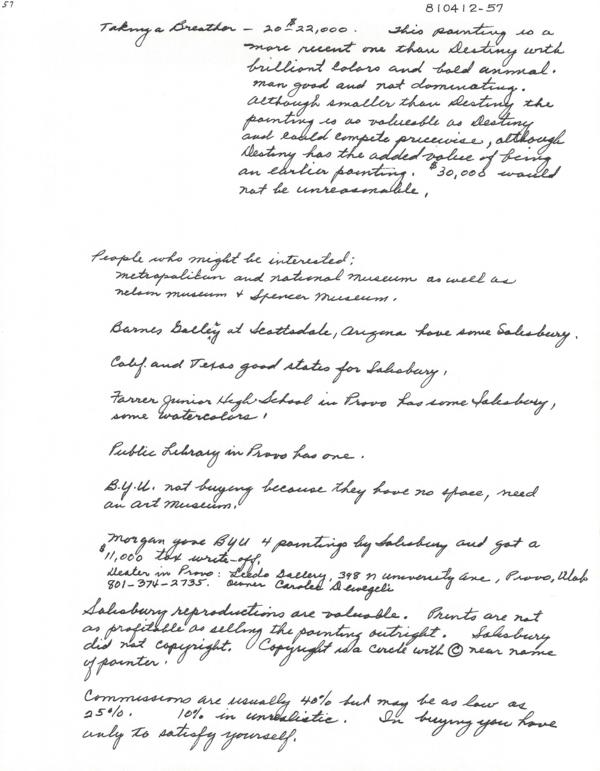 57
810412-57
Taking a Breather - 20 $22,000. This painting is a
more recent one than Destiny with
brilliant colors and bold animal.
man good and not dominating.
Although smaller than Destiny the
painting is as valueable as Destiny
and could compete pricewise, although
Destiny has the added value of being
an earlier painting. $30,000 would
not be unreasonable.
People who might be interested:
Metropolitan and national Museum as well as
nelson museum + Spencer Museum.
Barnes Gallery at Scottsdale, Arizona have some Salisbury.
Calif. and Texas good states for Salisbury.
Farrer Junior High School in Provo has some Salisbury,
some watercolors.
Public Library in Provo has one.
B.Y.U. not buying because they have no space, need
an art Museum.
Morgan gave BYU 4 paintings by Salisbury and got a
$11,000 tax write-off.
Dealer in Provo: Gallery, 398 N University Ave, Provo, Utah
801-374-2735. owner Carolee
Salisbury reproductions are valuable. Prints are not
as profitable as selling the painting outright. Salisbury
did not copyright. Copyright is a circle with © near name
of painter.
Commissions are usually 40% but may be as low as
25%. 10% in unrealistic. In buying you have
only to satisfy yourself.